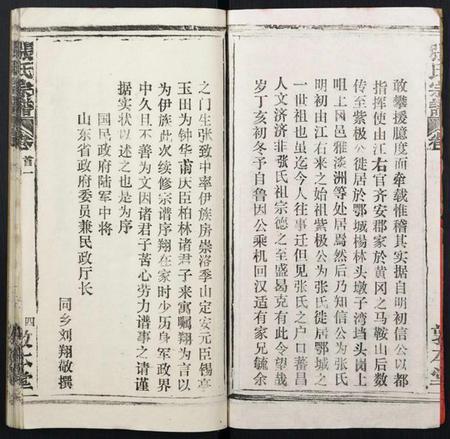 張氏宗譜
卷
敢攀援臆度而牵载惟稽其实据自明初信公以都
指挥使由江右官齐安郡家於黄冈之马鞍山后数
传至紫极公徙居於鄂城杨林头墩子湾垱头岗上
咀上冈邑雅淡洲等处焉然后乃知信公为张氏
明初由江右来之始祖紫极公为张氏徙居鄂城之
一世祖也虽迄今人往事迁但见张氏之户口蕃昌
人文济济非张氏祖宗德之至盛曷克有此令望哉
岁丁亥初冬予自鲁因公乘机回汉适有家兄毓余
敦本堂
之门生张致中率伊族房崇洛季山定安元臣锡亭
玉田为钟华甫庆臣柏林诸君子来寓嘱翔为言以
为伊族此次续修宗谱序翔在家时少历身军政界
中久且不善为文因诸君子苦心劳力谱事之请谨
据实状以述之也是为序
国民政府陆军中将
山东省政府委员兼民政厅长
同乡刘翔敬撰
張氏宗譜
卷首一
四
敦本堂